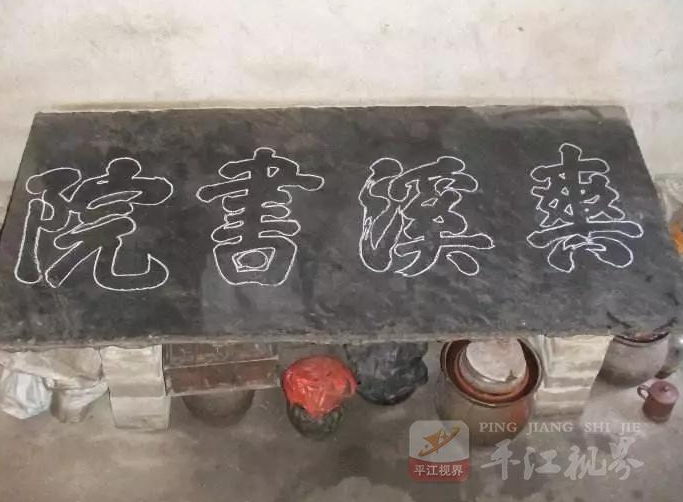 爽溪書院
PING JIANG SHI JIE
平江视界
平江视界